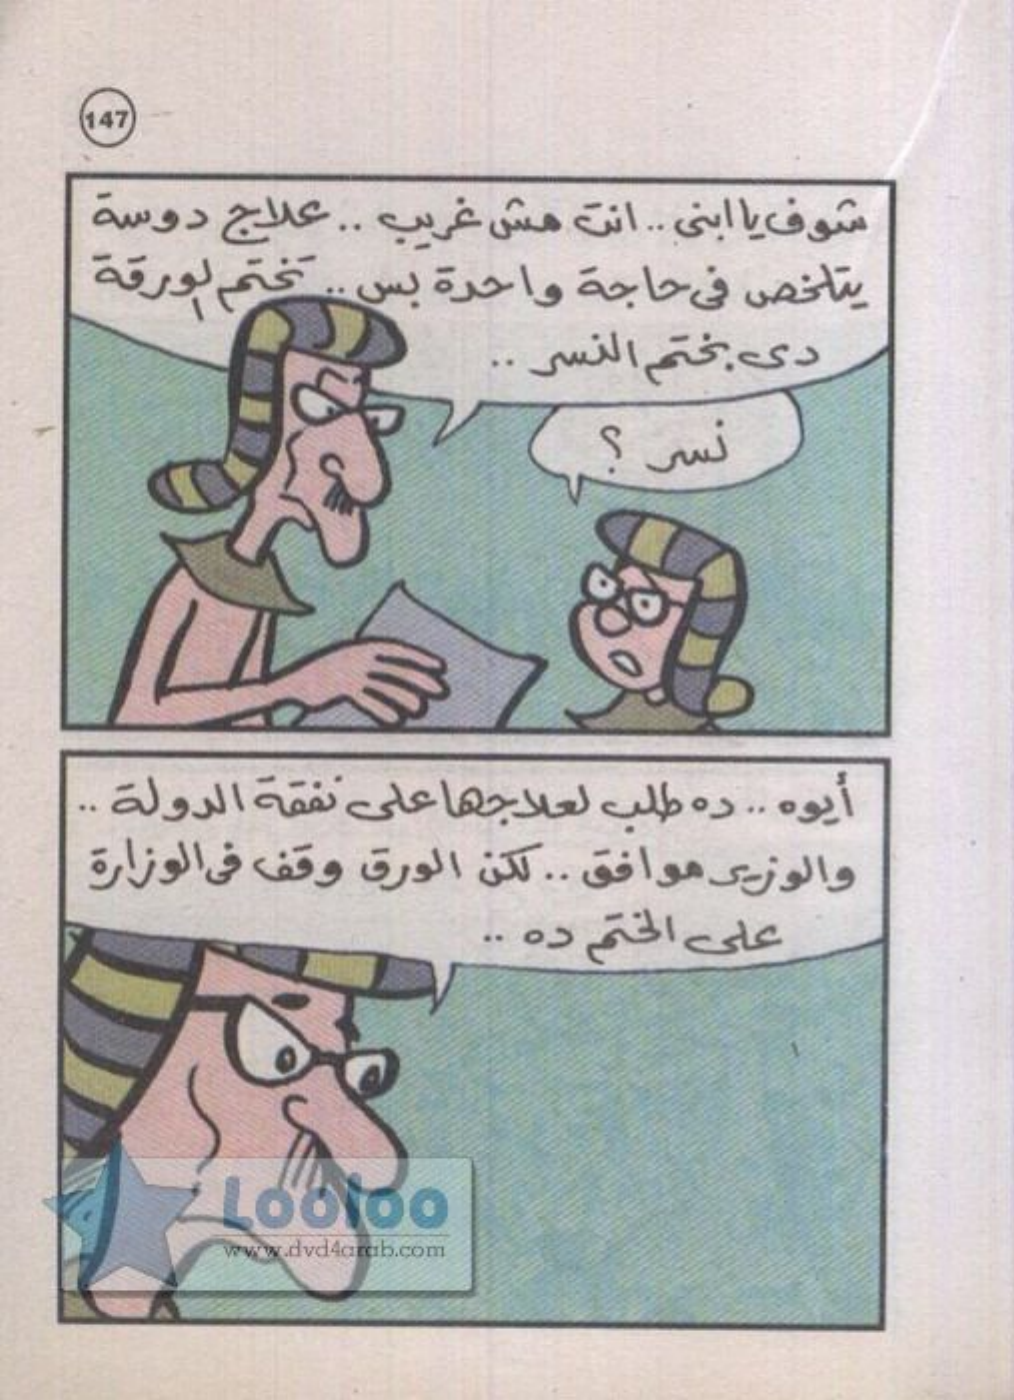 147
شوف يا ابنى .. انت مش غريب .. علاج دوسة
يتلخص فى حاجة واحدة بس .. تختم الورقة
دى بختم النسر ..
نسر ؟
أيوه .. ده طلب لعلاجها على نفقة الدولة ..
والوزير موافق .. لكن الورق وقف فى الوزارة
على الختم ده ..
Looloo
www.dvd4arab.com